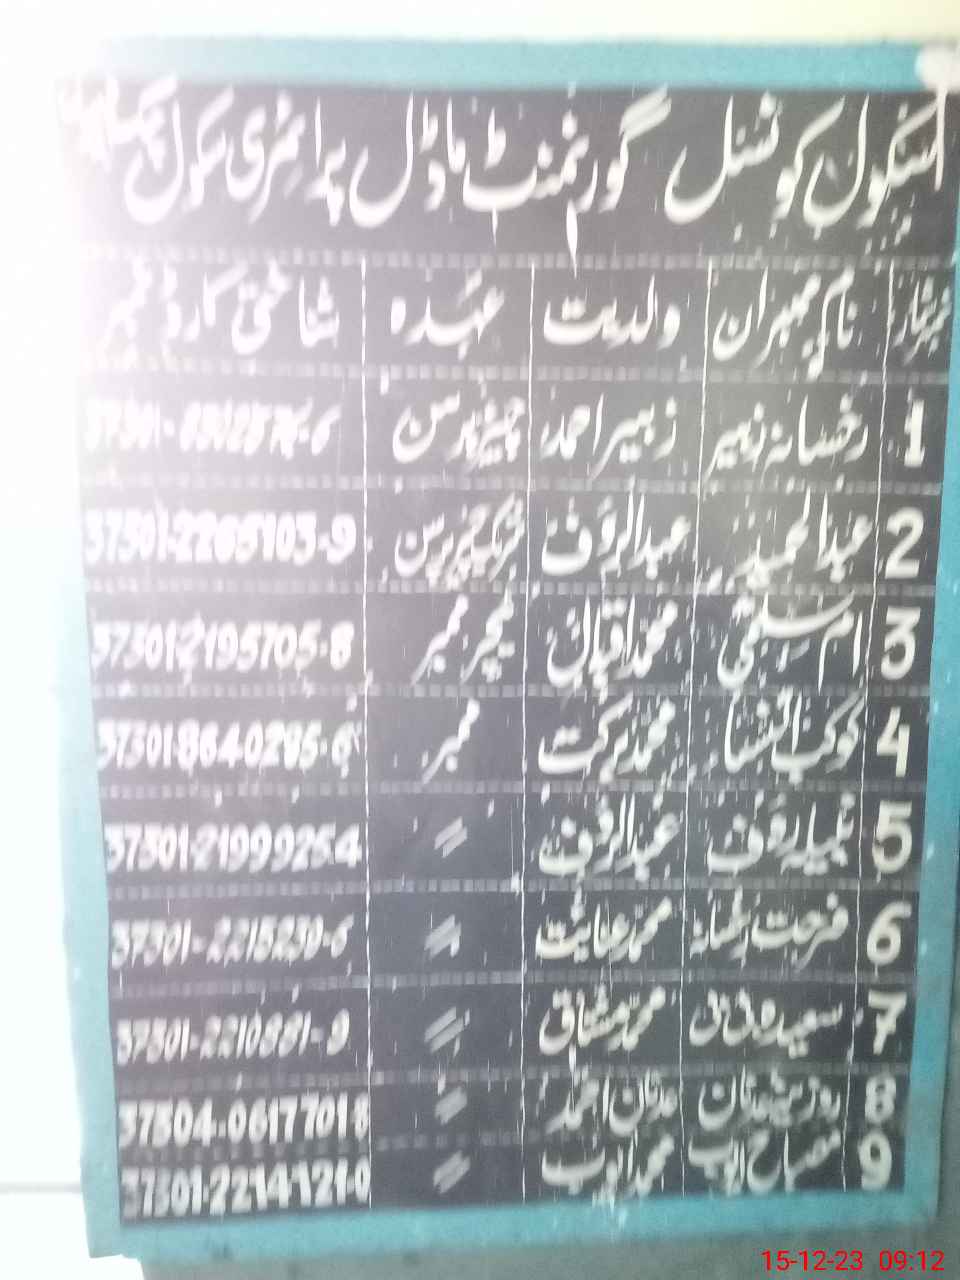 سکول کونسل گورنمنٹ ماڈل پرائمری سکول
نمبر شمار نام ممبران ولدیت عہدہ شناختی کارڈ نمبر
1 رخسانہ زبیر زبیر احمد چیئرپرسن
2 عبدالحمید عبدالرؤف شریک چیئرپرسن 37301-2265103-9
3 ام سلمیٰ محمد اقبال ٹیچر ممبر 37301-2195705-8
4 کوکب النساء محمد برکت ممبر 37301-8640285-6
5 نبیلہ رؤف عبدالرؤف 〃 37301-2199925-4
6 فرحت رخسانہ محمد عنایت 〃 37301-2215230-6
7 سعیدہ بی بی محمد مشتاق 〃 37301-2210881-9
8 عدنان عدنان احمد 〃 37304-0617701-8
9 مصباح ایوب محمد ایوب 〃 37301-2214121-0
15-12-23 09:12